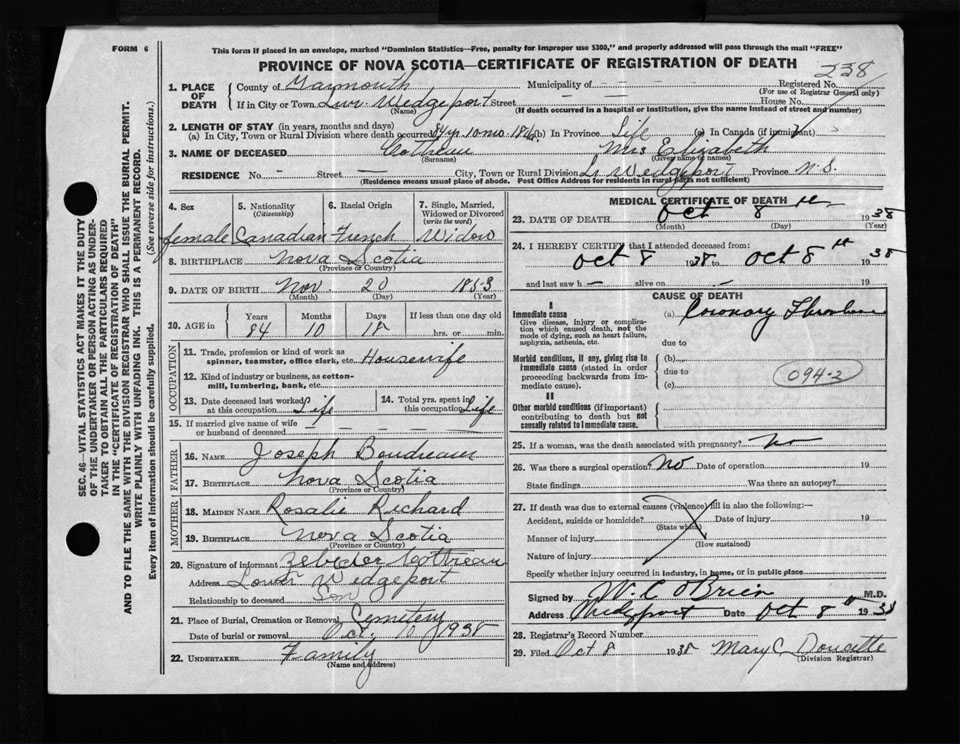 FORM 6
This form if placed in an envelope, marked "Dominion Statistics—Free, penalty for improper use $300," and properly addressed will pass through the mail "FREE"
PROVINCE OF NOVA SCOTIA—CERTIFICATE OF REGISTRATION OF DEATH
238
1. PLACE OF DEATH
County of Yarmouth Municipality of — — — Registered No.
(For use of Registrar General only)
If in City or Town Lwr Wedgeport Street — — House No.
(Name) (If death occurred in a hospital or institution, give the name instead of street and number)
2. LENGTH OF STAY (in years, months and days)
(a) In City, Town or Rural Division where death occurred 84 yr. 10 mo. 18 (b) In Province Life (c) In Canada (if immigrant)
3. NAME OF DECEASED Mrs Elizabeth
(Surname) (Given name or names)
RESIDENCE No. — Street — City, Town or Rural Division Lr Wedgeport Province N.S.
(Residence means usual place of abode. Post Office Address for residents in rural parts not sufficient)
4. Sex female
5. Nationality (Citizenship) Canadian
6. Racial Origin French
7. Single, Married, Widowed or Divorced (write the word) Widow
8. BIRTHPLACE Nova Scotia
(Province or Country)
9. DATE OF BIRTH Nov 20 1853
(Month) (Day) (Year)
10. AGE in Years Months Days If less than one day old
84 10 18 hrs. or min.
OCCUPATION
11. Trade, profession or kind of work as spinner, teamster, office clerk, etc. Housewife
12. Kind of industry or business, as cotton-mill, lumbering, bank, etc.
13. Date deceased last worked at this occupation Life
14. Total yrs. spent in this occupation Life
15. If married give name of wife or husband of deceased — — — —
FATHER
16. NAME Joseph Boudreau
17. BIRTHPLACE Nova Scotia
(Province or Country)
MOTHER
18. MAIDEN NAME Rosalie Richard
19. BIRTHPLACE Nova Scotia
(Province or Country)
20. Signature of informant
Address Lower Wedgeport
Relationship to deceased Son
21. Place of Burial, Cremation or Removal Cemetery
Date of burial or removal Oct. 10 1938
22. UNDERTAKER Family
(Name and Address)
MEDICAL CERTIFICATE OF DEATH
23. DATE OF DEATH Oct 8th 1938
(Month) (Day) (Year)
24. I HEREBY CERTIFY that I attended deceased from:
Oct 8 1938 to Oct 8th 1938
and last saw h — alive on — 19
CAUSE OF DEATH
I
Immediate cause
Give disease, injury or complication which caused death, not the mode of dying, such as heart failure, asphyxia, asthenia, etc.
(a) Coronary
due to
Morbid conditions, if any, giving rise to immediate cause (stated in order proceeding backwards from immediate cause).
(b)
due to
(c)
094-2
II
Other morbid conditions (if important) contributing to death but not causally related to immediate cause.
25. If a woman, was the death associated with pregnancy? no
26. Was there a surgical operation? No Date of operation 19
State findings Was there an autopsy?
27. If death was due to external causes (violence) fill in also the following:—
Accident, suicide or homicide? Date of injury 19
(State which)
Manner of injury
(How sustained)
Nature of injury
Specify whether injury occurred in industry, in home, or in public place
Signed by W. C. O'Brien M.D.
Address Wedgeport Date Oct 8th 1938
28. Registrar's Record Number
29. Filed Oct 8 1938 Mary C Doucette
(Division Registrar)
SEC. 46—VITAL STATISTICS ACT MAKES IT THE DUTY
OF THE UNDERTAKER OR PERSON ACTING AS UNDER-
TAKER TO OBTAIN ALL THE PARTICULARS REQUIRED
IN THE "CERTIFICATE OF REGISTRATION OF DEATH"
AND TO FILE THE SAME WITH THE DIVISION REGISTRAR WHO SHALL ISSUE THE BURIAL PERMIT.
WRITE PLAINLY WITH UNFADING INK. THIS IS A PERMANENT RECORD.
Every item of information should be carefully supplied. (See reverse side for instructions.)